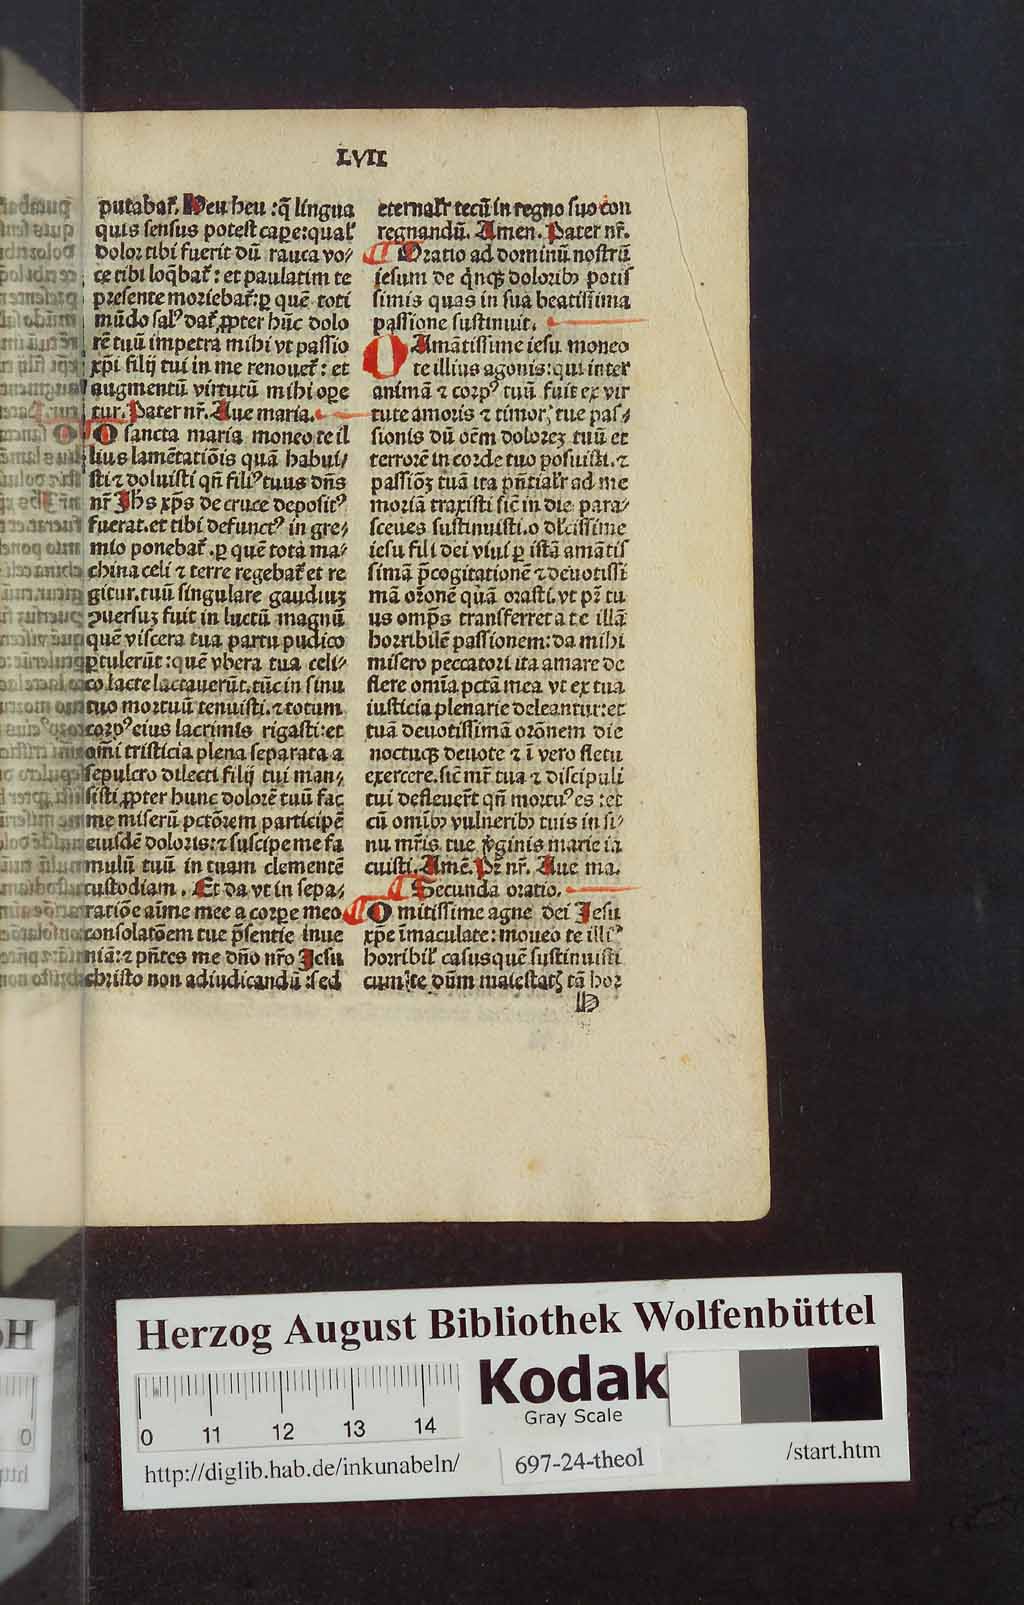 LVII
putabat᷑. Heu heu :q̄ lingua
quis sensus potest cape:qual᷑
dolor tibi fuerit dū rauca vo⸗
ce tibi loq̄bat᷑: et paulatim te
presente moriebat᷑:ꝑ quē toti
mūdo salꝰ dat᷑,ꝓpter hūc dolo
rē tuū impetra mihi vt passio
xp̄i filij tui in me renouet᷑: et
augmentū virtutū mihi ope
tur. Pater nr̄. Aue maria.
O sancta maria moneo te il
lius lamētatiōis quā habui⸗
sti ⁊ doluisti qn̄ filiꝰ tuus dn̄s
nr̄ Jhs xp̄s de cruce depositꝰ
fuerat.et tibi defunctꝰ in gre⸗
mio ponebat᷑.ꝑ quē tota ma⸗
china celi ⁊ terre regebat᷑ et re
gitur.tuū singulare gaudiuꝫ
ꝯuersuꝫ fuit in luctū magnū
quē viscera tua partu pudico
ꝓtulerūt:quē vbera tua celi⸗
co lacte lactauerūt.tūc in sinu
tuo mortuū tenuisti.⁊ totum
corpꝰ eius lacrimis rigasti:et
om̄i tristicia plena separata a
sepulcro dilecti filij tui man⸗
sisti,ꝓpter hunc dolorē tuū fac
me miserū pctōrem participē
eiusdē doloris:⁊ suscipe me fa
mulū tuū in tuam clementē
custodiam. Et da vt in sepa⸗
ratiōe aīme mee a corpe meo
consolatōem tue p̄sentie inue
niā:⁊ pn̄tes me dn̄o nr̄o Jesu
christo non adiudicandū :sed
eternalr̄ tecū in regno suo con
regnandū. Amen. Pater nr̄.
Oratio ad dominū nostrū
iesum de q̄nqꝫ doloribꝰ potis
simis quas in sua beatissima
passione sustinuit.
O Amātissime iesu moneo
te illius agonis:qui inter
animā ⁊ corpꝰ tuū fuit ex vir
tute amoris ⁊ timorꝭ tue pas⸗
sionis dū oēm dolorez tuū et
terrorē in corde tuo posuisti.⁊
passiōꝫ tuā ita pn̄tialr̄ ad me
moriā traxisti sic̄ in die para⸗
sceues sustinuisti.o dl̄cissime
iesu fili dei viui ꝑ istā amātis
simā p̄cogitationē ⁊ deuotissi
mā or̄onē quā orasti.vt pr̄ tu
us omp̄s transferret a te illā
horribilē passionem:da mihi
misero peccatori ita amare de
flere omīa pctā mea vt ex tua
iusticia plenarie deleantur:et
tuā deuotissimā orōnem die
noctuqꝫ deuote ⁊ ī vero fletu
exercere.sic̄ mr̄ tua ⁊ discipuli
tui defleuer̄t qn̄ mortuꝰ es :et
cū omībꝰ vulneribꝰ tuis in si⸗
nu mr̄is tue v̓ginis marie ia
cuisti. Amē. Pr̄ nr̄. Aue ma.
Secunda oratio.
O mitissime agne dei Jesu
xp̄e īmaculate: moueo te illiꝰ
horribil᷑ casusquē sustinuisti
cum te dūm maiestatꝭ tā hor
h
Herzog August Bibliothek Wolfenbüttel
Kodak
Gray Scale
0 11 12 13 14
http://diglib.hab.de/inkunabeln/
697-24-theol
/start.htm